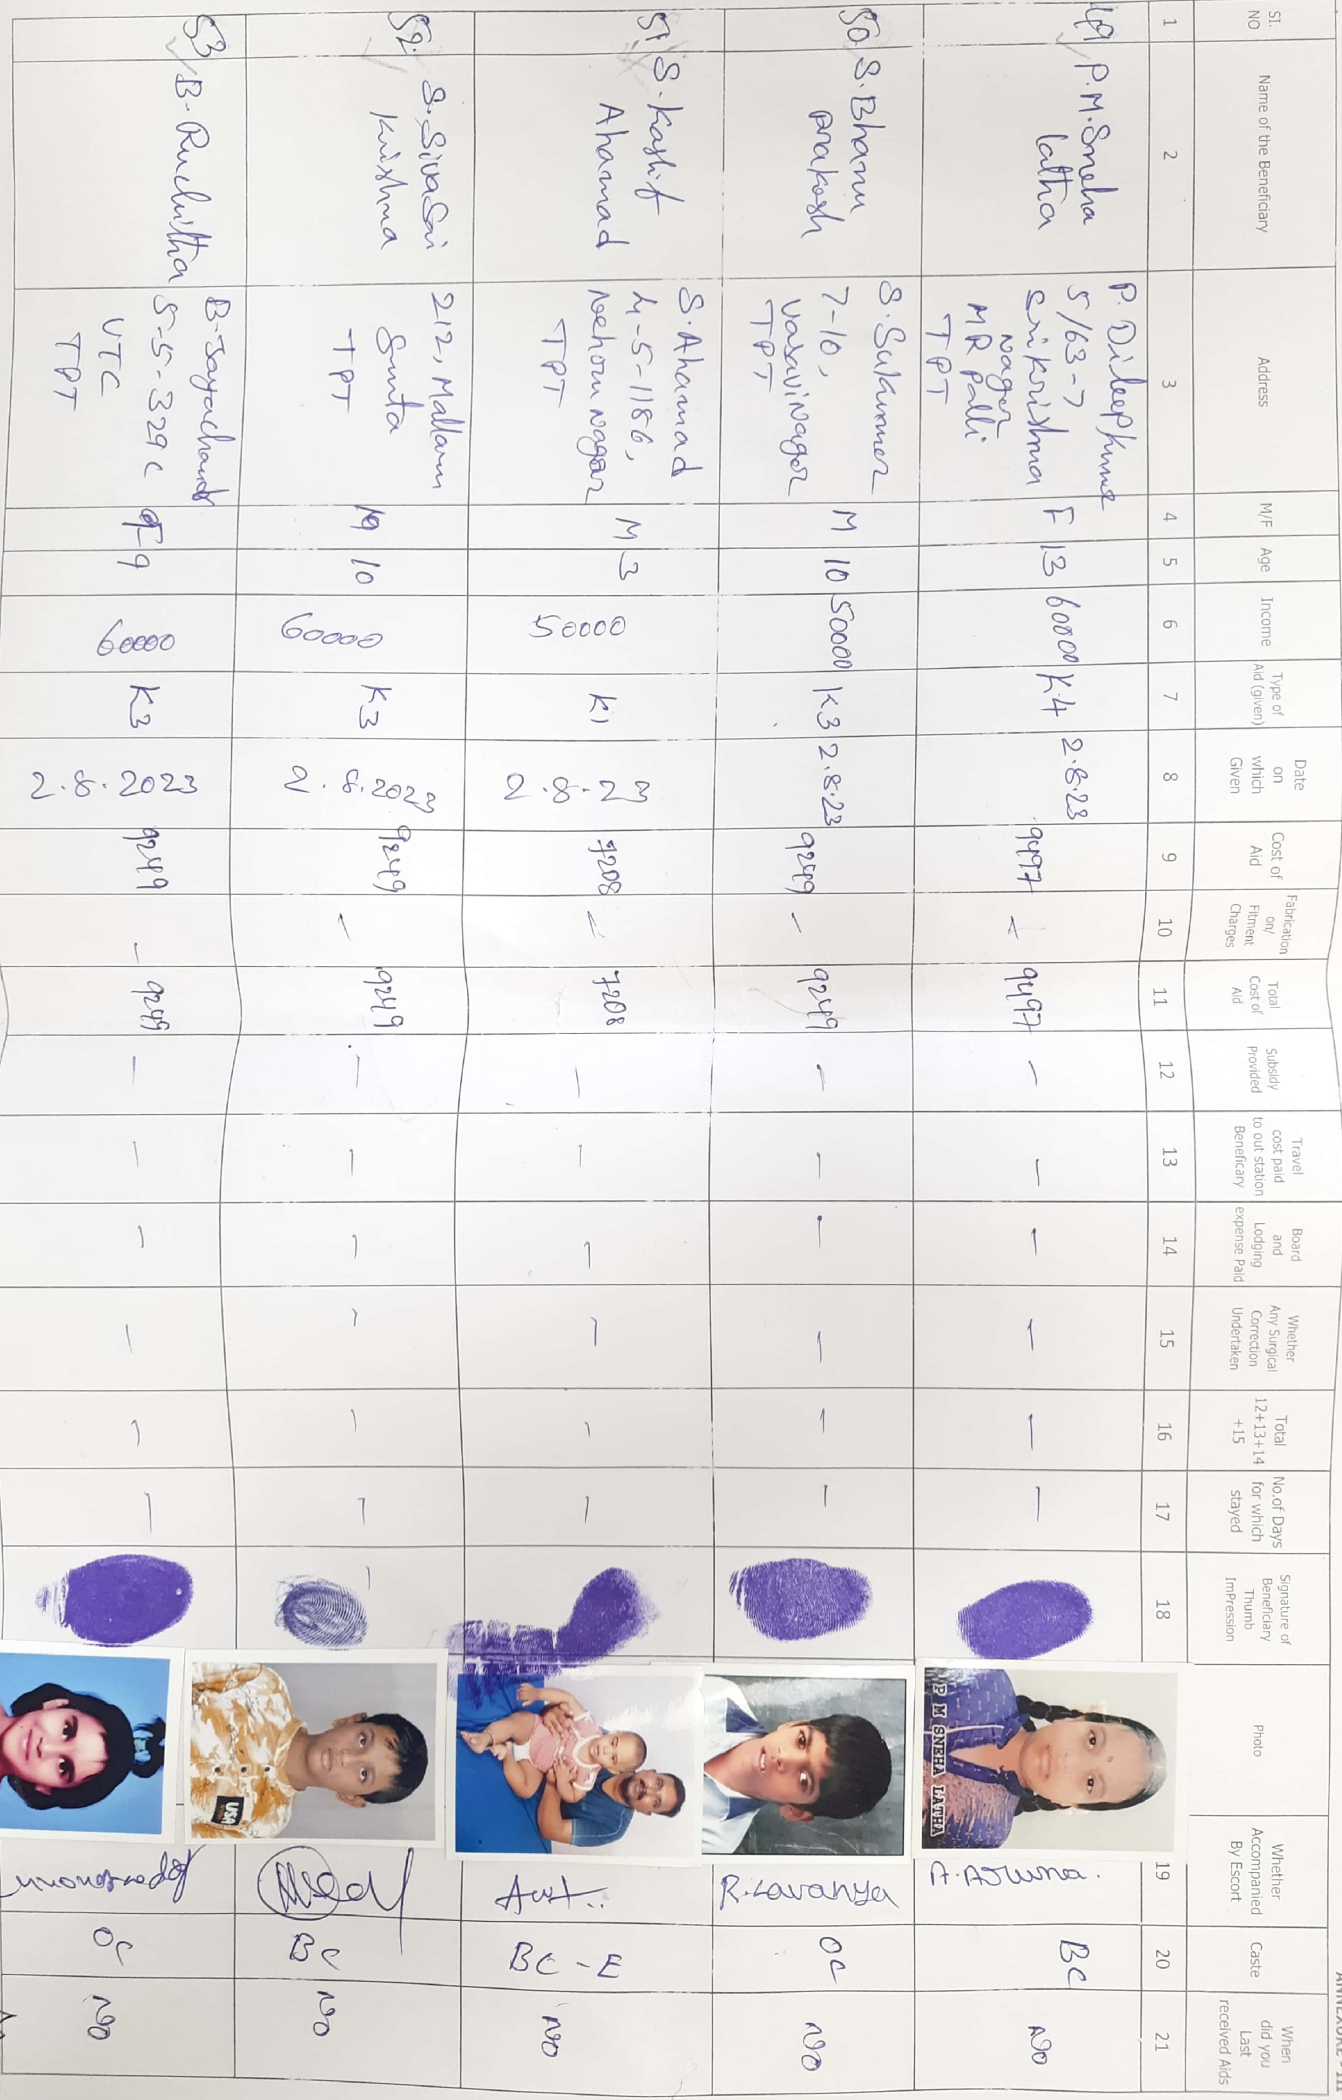 ANNEXURE - II
Sl. NO
Name of the Beneficiary
Address
M/F
Age
Income
Type of Aid (given)
Date on which Given
Cost of Aid
Fabrication on/ Fitment Charges
Total Cost of Aid
Subsidy Provided
Travel cost paid to out station Beneficary
Board and Lodging expense Paid
Whether Any Surgical Correction Undertaken
Total 12+13+14 +15
No.of Days for which stayed
Signature of Beneficiary Thumb ImPression
Photo
Whether Accompanied By Escort
Caste
When did you Last received Aids
1 2 3 4 5 6 7 8 9 10 11 12 13 14 15 16 17 18 19 20 21
49 P.M.Sneha latha
P. Dileep Kumar
5/63-7
Srikrishna
Nagar
MR Palli
TPT
F 13 60000 K4 2.8.23 9497 - 9497 - - - - - -
P M SNEHA LATHA
A.Aruna.
BC
No
50. S.Bhanu prakash
S.Sukumar
7-10,
Vasavi Nagar
TPT
M 10 50000 K3 2.8.23 9249 - 9249 - - - - - -
R.Lavanya
OC
No
51. S.Kashif Ahamad
S.Ahamad
4-5-1186,
Nehru Nagar
TPT
M 3 50000 K1 2.8.23 7208 - 7208 - - - - - -
BC-E
No
52. S.Siva Sai Krishna
212, Mallam
Gunta
TPT
M 10 60000 K3 2.8.2023 9249 - 9249 - - - - - -
USA
BC
No
53 B.Ruchitha
B.Jayachandr
5-5-329C
UTC
TPT
F 9 60000 K3 2.8.2023 9249 - 9249 - - - - - -
OC
No